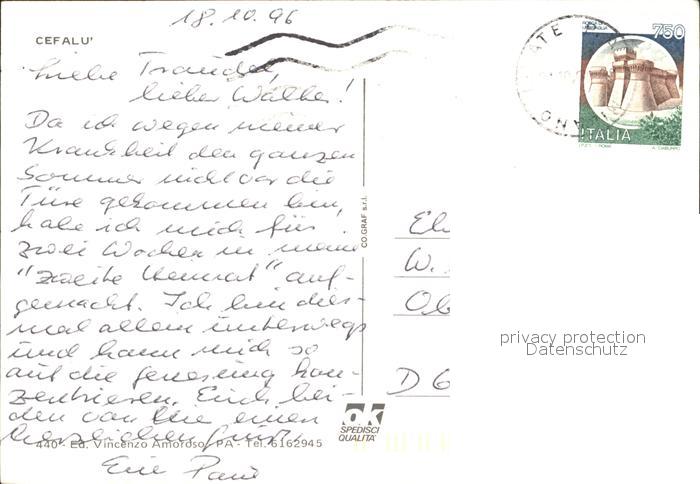 18.10.96
CEFALU'
Liebe Traudel,
lieber Walter!
Da ich wegen meiner
Krankheit den ganzen
Sommer nicht vor die
Türe gekommen bin,
habe ich mich für
zwei Wochen in meine
"zweite Heimat" auf-
gemacht. Ich bin dies-
mal allein unterwegs
und kann mich so
auf die Genesung kon-
zentrieren. Euch bei-
den von hier einen
herzlichen Gruß,
Eure
440 - Ed. Vincenzo Amoroso, PA - Tel. 6162945
CO.GRAF s.r.l.
ok
SPEDISCI
QUALITA'
750
ITALIA
W.
D 6
privacy protection
Datenschutz